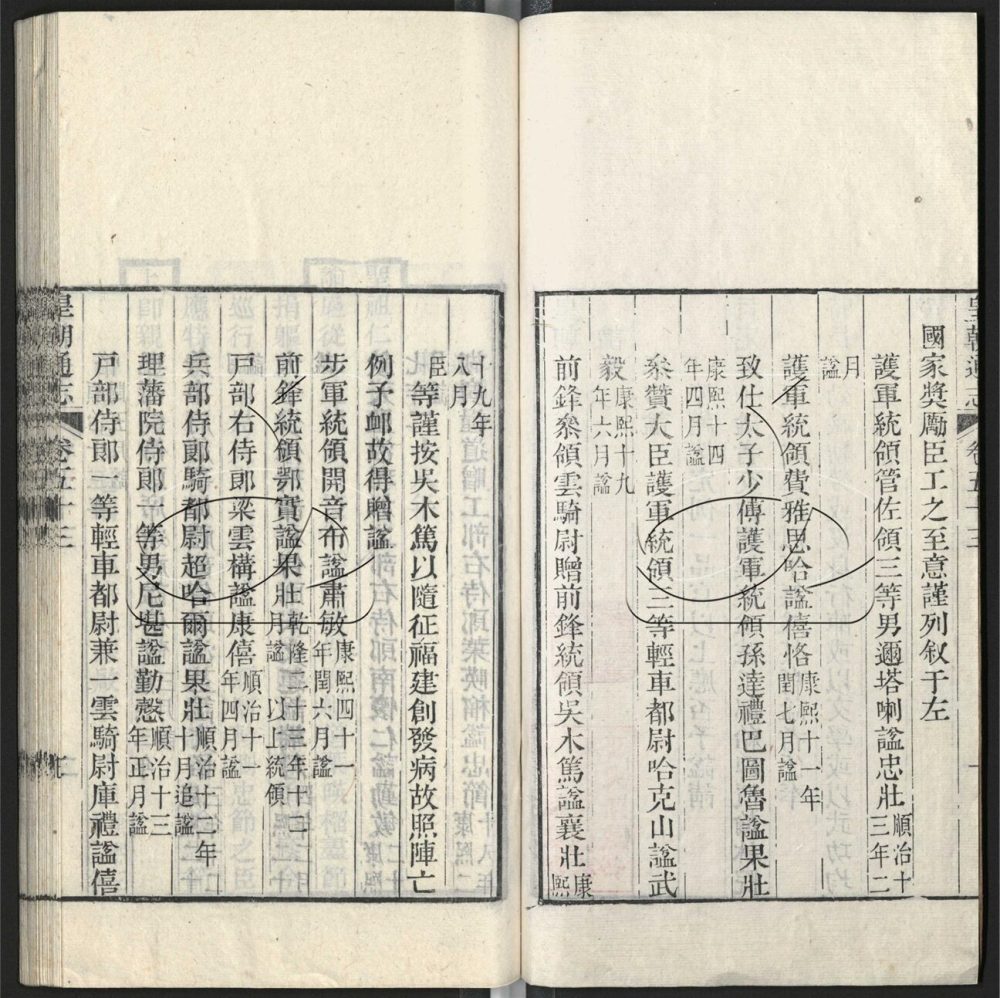 國家奬勵臣工之至意謹列叙于左
護軍統領管佐領三等男邇塔喇諡忠壯順治十三年二
月諡
護軍統領費雅思哈諡僖恪康熙十一年閏七月諡
致仕太子少傅護軍統領孫達禮巴圖魯諡果壯
康熙十四年四月諡
叅贊大臣護軍統領三等輕車都尉哈克山諡武
毅康熙十九年六月諡
前鋒叅領雲騎尉贈前鋒統領吳木篤諡襄壯康熙
皇朝通志 卷五十三
十九年八月
臣等謹按吳木篤以隨征福建創發病故照陣亡
例予䘏故得贈諡
步軍統領開音布諡肅敏康熙四十一年閏六月諡
前鋒統領鄂實諡果壯乾隆二十三年十二月諡 以上統領
戸部右侍郞梁雲構諡康僖順治十一年四月諡
兵部侍郞騎都尉超哈爾諡果壯順治十二年十月追諡
理藩院侍郞一等男尼堪諡勤慤順治十三年正月諡
戸部侍郞一等輕車都尉兼一雲騎尉庫禮諡僖
皇朝通志 卷五十三